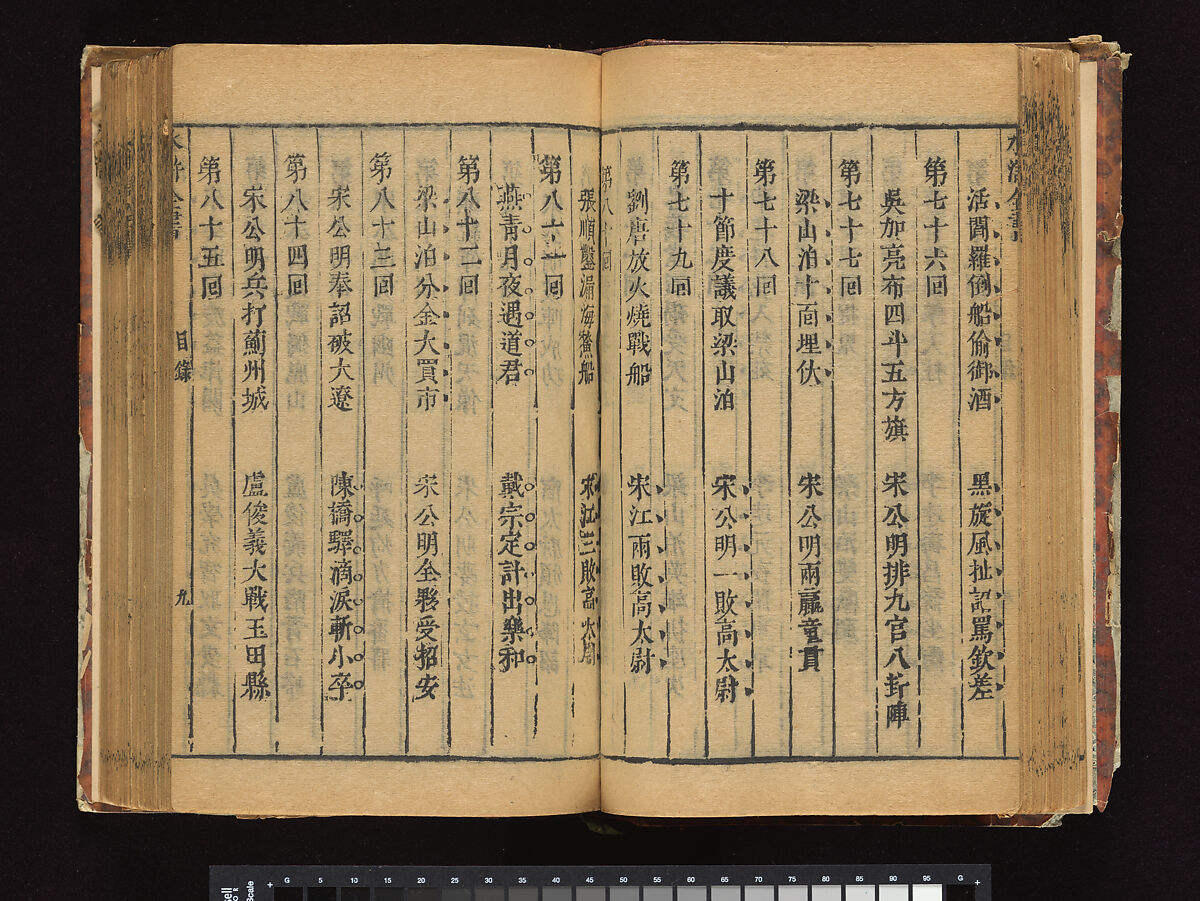 活閻羅倒船偷御酒　黑旋風扯詔罵欽差
第七十六回
吳加亮布四斗五方旗　宋公明排九宮八卦陣
第七十七回
梁山泊十面埋伏　宋公明兩贏童貫
第七十八回
十節度議取梁山泊　宋公明一敗高太尉
第七十九回
劉唐放火燒戰船　宋江兩敗高太尉
第八十回
張順鑿漏海鰲船　宋江三敗高太尉
第八十一回
燕青月夜遇道君　戴宗定計出樂和
第八十二回
梁山泊分金大買市　宋公明全夥受招安
第八十三回
宋公明奉詔破大遼　陳橋驛滴淚斬小卒
第八十四回
宋公明兵打薊州城　盧俊義大戰玉田縣
第八十五回
水滸全書　目錄　九
G 5 10 15 20 25 30 35 40 45 50 55 60 65 70 75 80 85 90 95 G